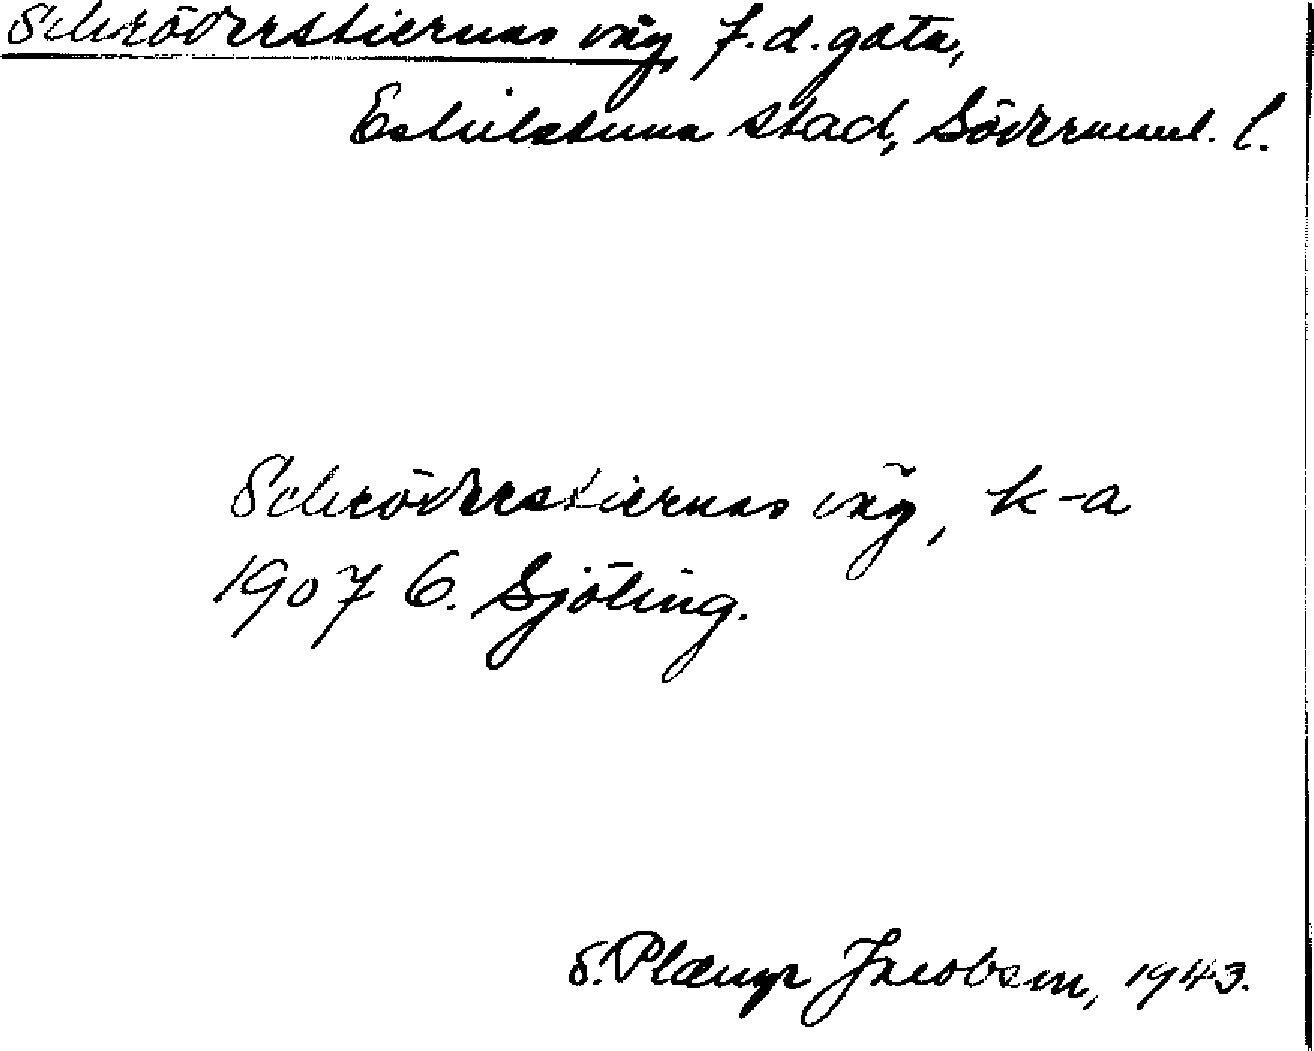 Schröderstiernas väg, f.d. gata,
Eskilstuna stad, Södermanl. l.
Schröderstiernas väg, k-a
1907 G. Sjöling.
S. Plænge Jacobson, 1943.